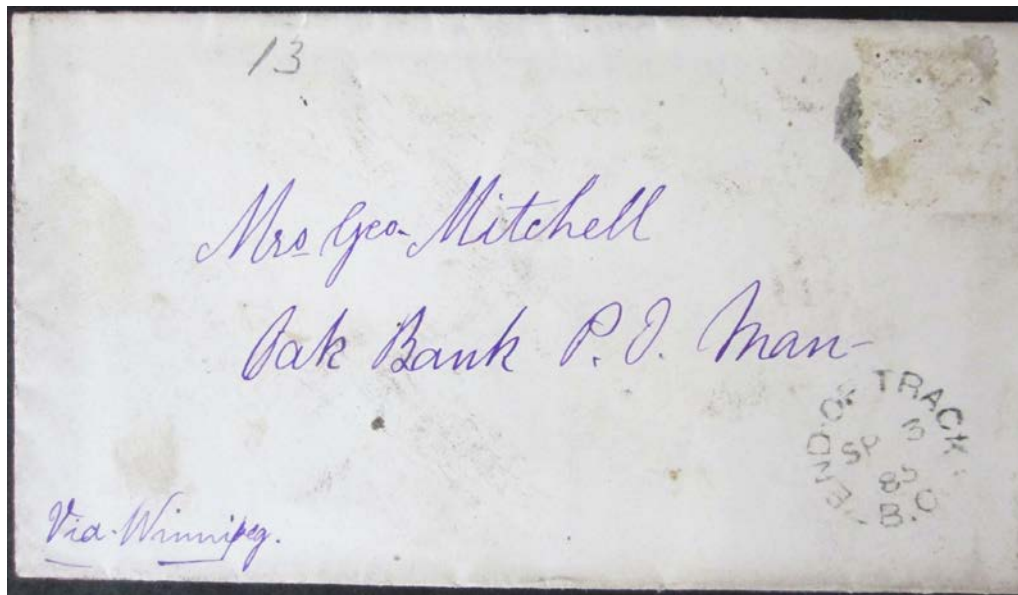 13
Mrs Geo- Mitchell
Oak Bank P.O. Man-
END OF TRACK
SP 3
85
B.C
Via- Winnipeg.